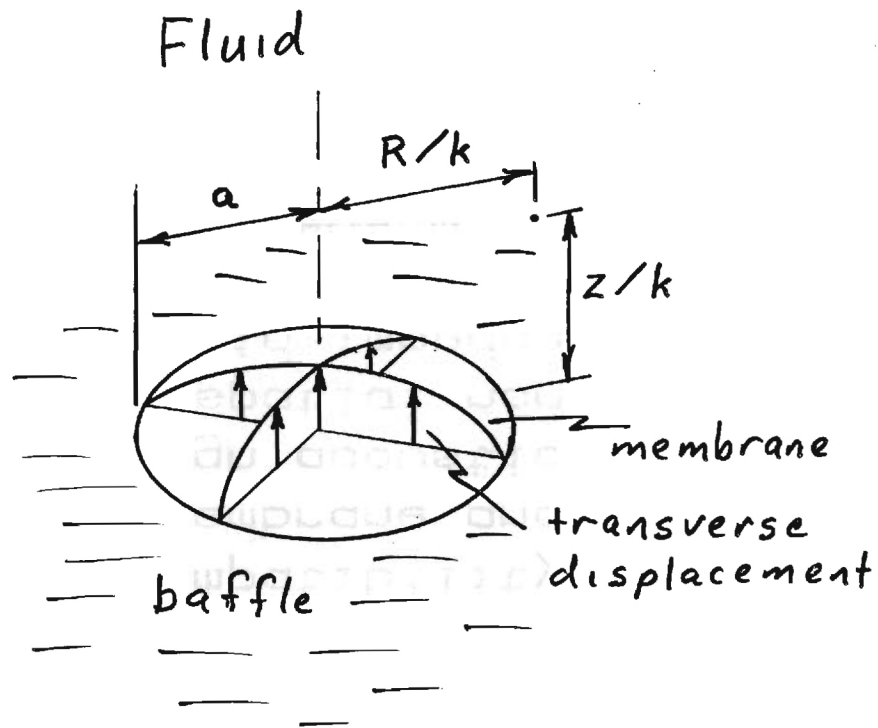 Fluid
R/k
a
z/k
membrane
transverse
displacement
baffle